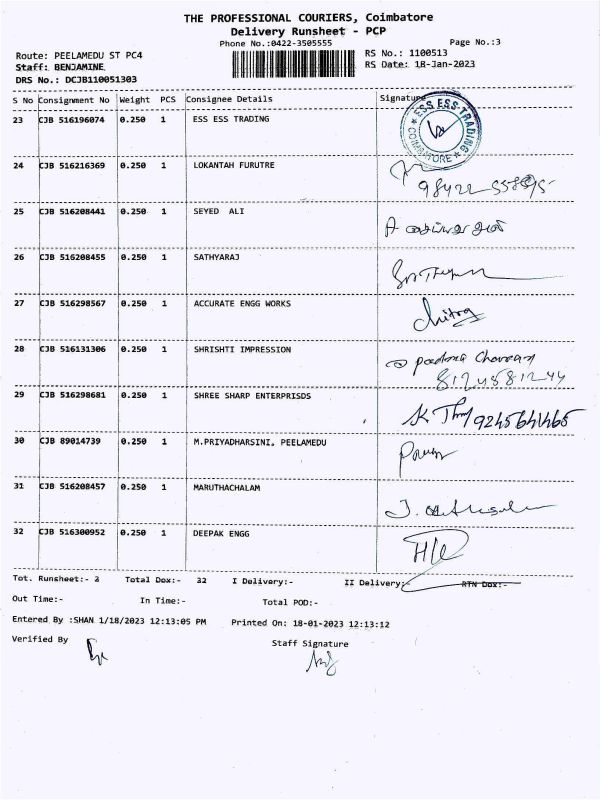 THE PROFESSIONAL COURIERS, Coimbatore
Delivery Runsheet - PCP
Phone No.:0422-3505555
Page No.:3
Route: PEELAMEDU ST PC4
RS No.: 1100513
Staff: BENJAMINE
RS Date: 18-Jan-2023
DRS No.: DCJB110051303
S No Consignment No Weight PCS Consignee Details Signature
23 CJB 516196074 0.250 1 ESS ESS TRADING
ESS ESS TRADING COIMBATORE
24 CJB 516216369 0.250 1 LOKANTAH FURUTRE
25 CJB 516208441 0.250 1 SEYED ALI
26 CJB 516208455 0.250 1 SATHYARAJ
27 CJB 516298567 0.250 1 ACCURATE ENGG WORKS
Chitra
28 CJB 516131306 0.250 1 SHRISHTI IMPRESSION
29 CJB 516298681 0.250 1 SHREE SHARP ENTERPRISDS
30 CJB 89014739 0.250 1 M.PRIYADHARSINI, PEELAMEDU
31 CJB 516208457 0.250 1 MARUTHACHALAM
32 CJB 516300952 0.250 1 DEEPAK ENGG
Tot. Runsheet:- 3 Total Dox:- 32 I Delivery:- II Delivery:- RTN Dox:-
Out Time:- In Time:- Total POD:-
Entered By :SHAN 1/18/2023 12:13:05 PM Printed On: 18-01-2023 12:13:12
Verified By
Staff Signature